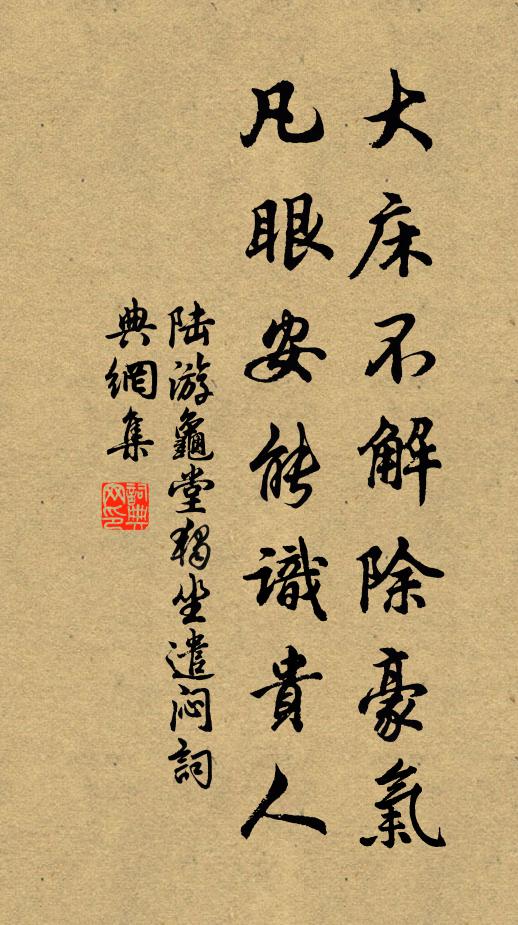 大床不解除豪氣
凡眼安能識貴人
陆游龜堂獨坐遣闷詞
典網集
詞典
网印